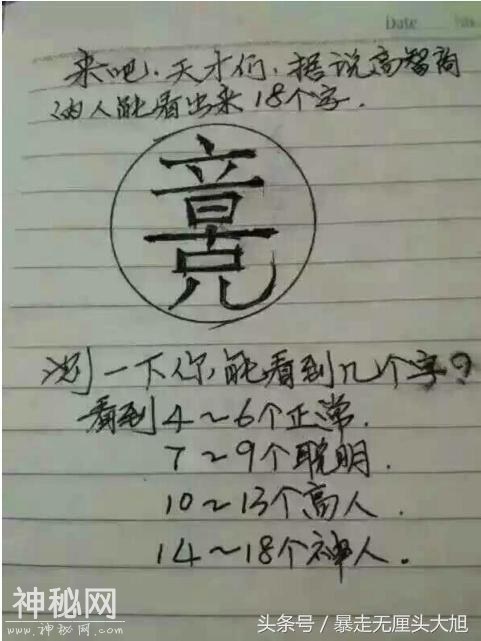 Date No.
来吧.天才们,据说高智商
的人能看出来18个字.
测一下你,能看到几个字?
看到4~6个正常.
7~9个聪明.
10~13个高人.
14~18个神人.
神秘网
www.shenmiw.com
头条号/暴走无厘头大旭